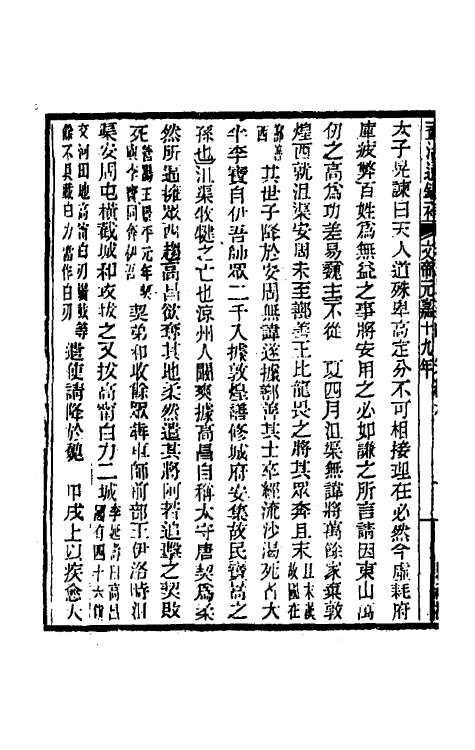 資治通鑑補 文帝元嘉十九年
太子晃諫曰天人道殊卑高定分不可相接理在必然今虛耗府
庫疲弊百姓爲無益之事將安用之必如謙之所言請因東山萬
仞之高爲功差易魏主不從 夏四月沮渠無諱將萬餘家棄敦
煌西就沮渠安周未至鄯善王比龍畏之將其眾奔且末且末漢故國在
鄯善西其世子降於安周無諱遂據鄯善其士卒經流沙渴死者大
半李寶自伊吾帥眾二千入據敦煌繕修城府安集故民寶暠之
孫也沮渠牧犍之亡也涼州人闞爽據高昌自稱太守唐契爲柔
然所逼擁眾西趨高昌欲奪其地柔然遣其將阿若追擊之契敗
死營陽王景平元年契與李寶同奔伊吾契弟和收餘眾犇車師前部王伊洛時沮
渠安周屯橫截城和攻拔之又拔高甯白力二城李延壽曰高昌國有四十六鎮
交河田地高甯白刃橫截等餘不具載白力當作白刃遣使請降於魏 甲戌上以疾愈大